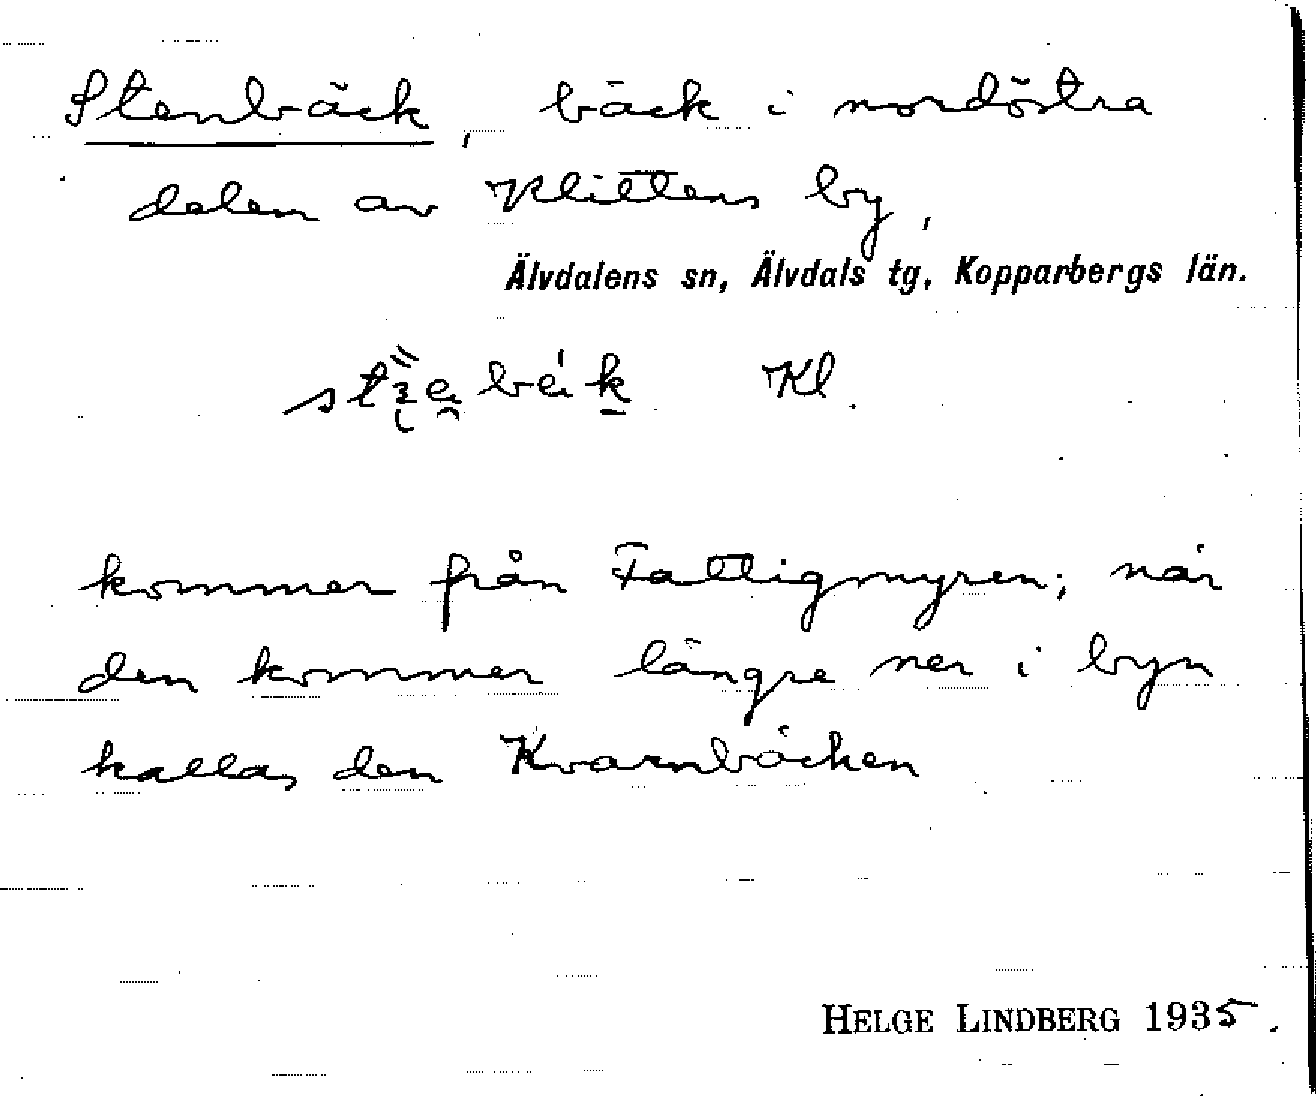 Stenbäck, bäck i nordöstra
delen av Klittens by,
Älvdalens sn, Älvdals tg, Kopparbergs län.
Kl.
kommer från Fattigmyren; når
den kommer längre ner i byn
kallas den Kvarnbäcken
HELGE LINDBERG 1935.